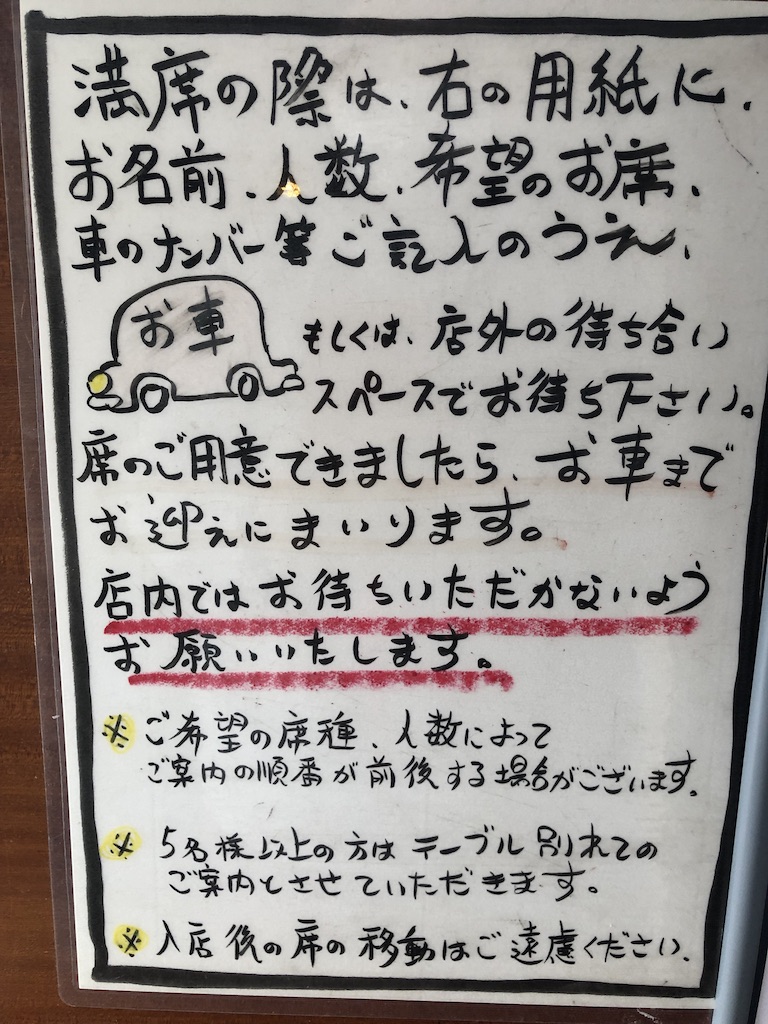 満席の際は、右の用紙に、
お名前、人数、希望のお席、
車のナンバー等ご記入のうえ、
お車 もしくは、店外の待ち合い
スペースでお待ち下さい。
席のご用意できましたら、お車まで
お迎えにまいります。
店内ではお待ちいただかないよう
お願いいたします。
※ ご希望の席種、人数によって
ご案内の順番が前後する場合がございます。
※ 5名様以上の方はテーブル別れての
ご案内とさせていただきます。
※ 入店後の席の移動はご遠慮ください。